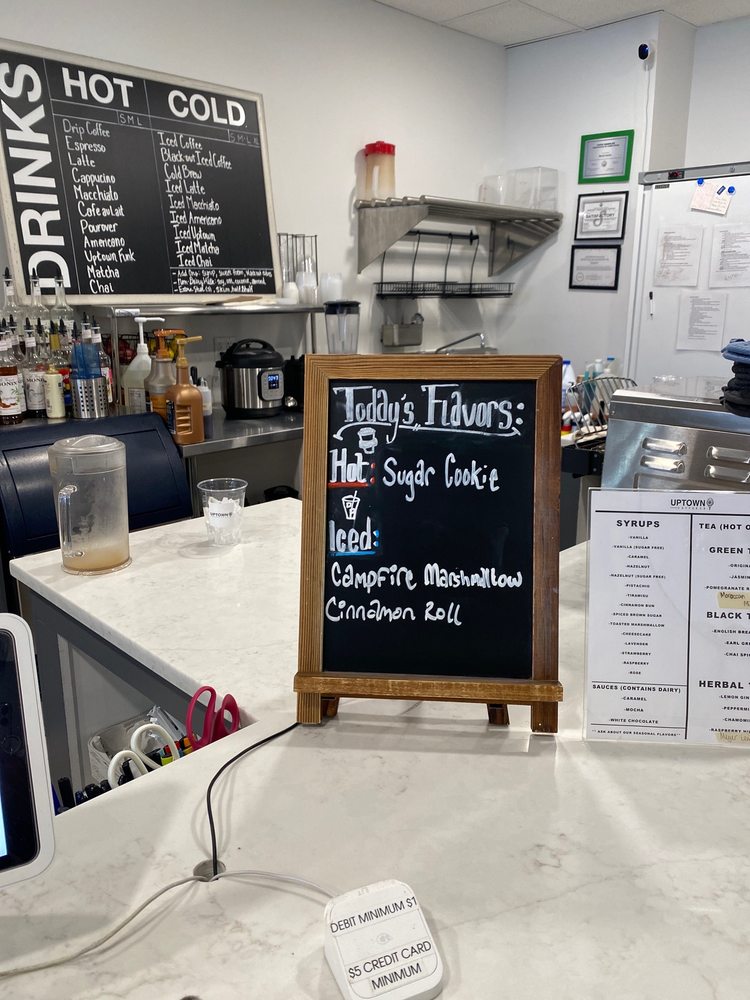 DRINKS
HOT
S M L
Drip Coffee
Espresso
Latte
Cappucino
Macchiato
Cafe au lait
Pourover
Americano
Uptown Funk
Matcha
Chai
COLD
S·M·L·XL
Iced Coffee
Black-out Iced Coffee
Cold Brew
Iced Latte
Iced Macchiato
Iced Americano
Iced Uptown
Iced Matcha
Iced Chai
Today's Flavors:
Hot: Sugar Cookie
Iced:
Campfire Marshmallow
Cinnamon Roll
UPTOWN
UPTOWN
SYRUPS
-VANILLA
-VANILLA (SUGAR FREE)
-CARAMEL
-HAZELNUT
-HAZELNUT (SUGAR FREE)
-PISTACHIO
-TIRAMISU
-CINNAMON BUN
-SPICED BROWN SUGAR
-TOASTED MARSHMALLOW
-CHEESECAKE
-LAVENDER
-STRAWBERRY
-RASPBERRY
-ROSE
SAUCES (CONTAINS DAIRY)
-CARAMEL
-MOCHA
-WHITE CHOCOLATE
** ASK ABOUT OUR SEASONAL FLAVORS**
TEA (HOT O
GREEN T
-ORIGIN
-JASMI
-POMEGRANATE R
Moroccan
BLACK T
-ENGLISH BREA
-EARL GR
-CHAI SPI
HERBAL T
-LEMON GIN
-PEPPERMI
-CHAMOMI
-RASPBERRY HI
DEBIT MINIMUM $1
$5 CREDIT CARD
MINIMUM